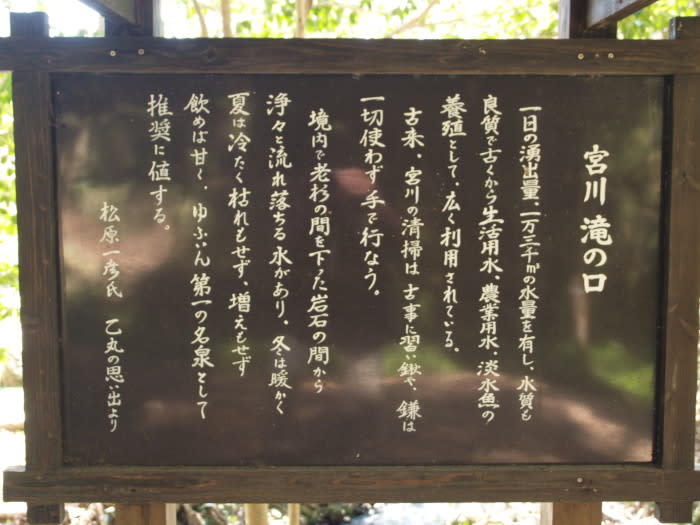 宮川 滝の口
一日の湧出量、一万三千㎥の水量を有し、水質も
良質で古くから生活用水、農業用水、淡水魚の
養殖として、広く利用されている。
古来、宮川の清掃は古事に習い鍬や、鎌は
一切使わず手で行なう。
境内で老杉の間を下った岩石の間から
浄々と流れ落ちる水があり、冬は暖かく
夏は冷たく枯れもせず、増えもせず
飲めば甘く、ゆふいん第一の名泉として
推奨に値する。
松原一彦氏 乙丸の思い出より